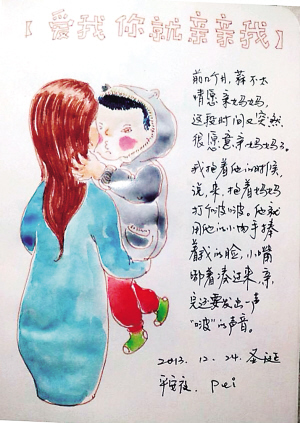 【爱我你就亲亲我】
前几个月，蒜不太
情愿亲妈妈，
这段时间又突然
很愿意亲妈妈了。
我抱着他的时候，
说，来，抱着妈妈
打个啵啵。他就
用他的小肉手捧
着我的脸，小嘴
嘟着凑过来，亲
完还要发出一声
“啵”的声音。
2013.12.24.圣诞
平安夜. Pei